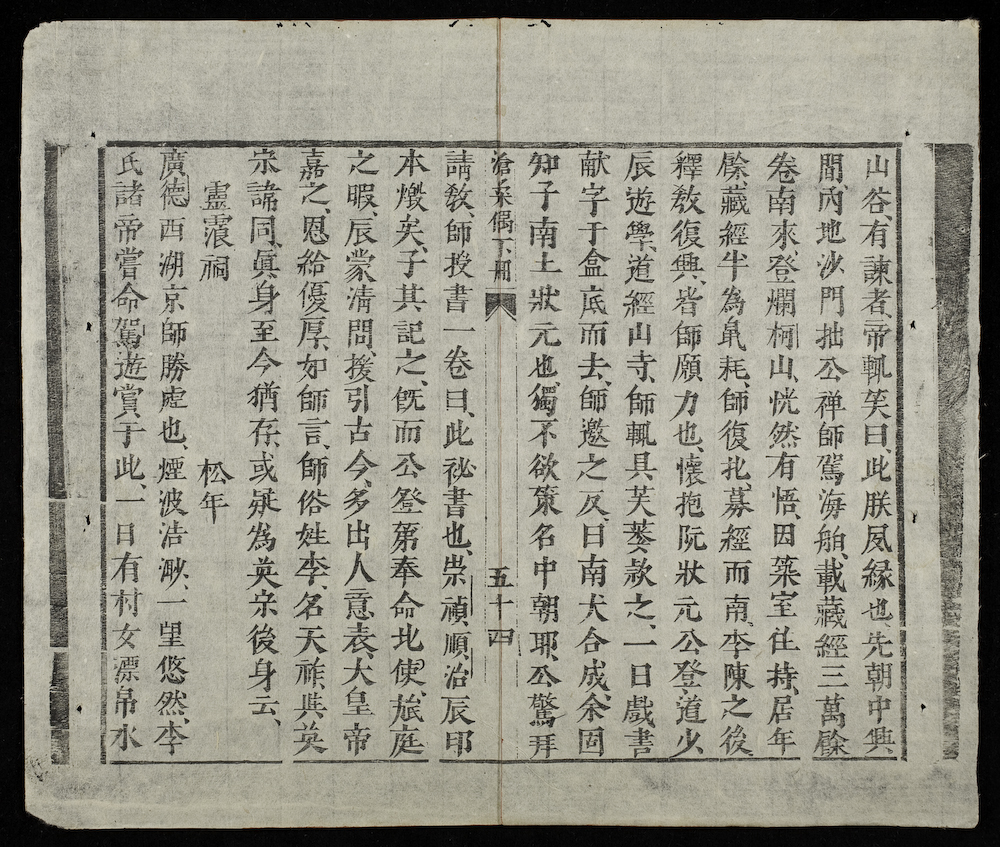 山谷、有諫者、帝輒笑曰、此朕夙緣也、先朝中興
間、內地沙門拙公禅師駕海舶、載藏經三萬餘
卷南來、登爛柯山、恍然有悟、因築室住持、居年
餘、藏經半為䑕耗、師復北、募經而南、李陳之後、
釋敎復興、皆師願力也、懷抱阮狀元公登道少
辰遊學、道經山寺、師輒具芙蔞欵之、一日戲書
献字于盒底而去、師邀之反、曰南犬合成、余固
知子南土狀元也、獨不欲策名中朝耶、公驚拜
滄桑偶下册 五十四
請敎、師授書一卷曰、此祕書也、崇禎、順治辰印
本燬矣、子其記之、旣而公登第奉命北使、旅庭
之暇、辰蒙清問、援引古今、多出人意表、大皇帝
嘉之、恩給優厚、如師言、師俗姓李、名天祚、與英
宗諱同、眞身至今猶存、或疑為英宗後身云、
靈𣼽祠 松年
廣德西湖京師勝處也、煙波浩渺、一望悠然、李
氏諸帝嘗命駕遊賞于此、一日有村女漂帛水